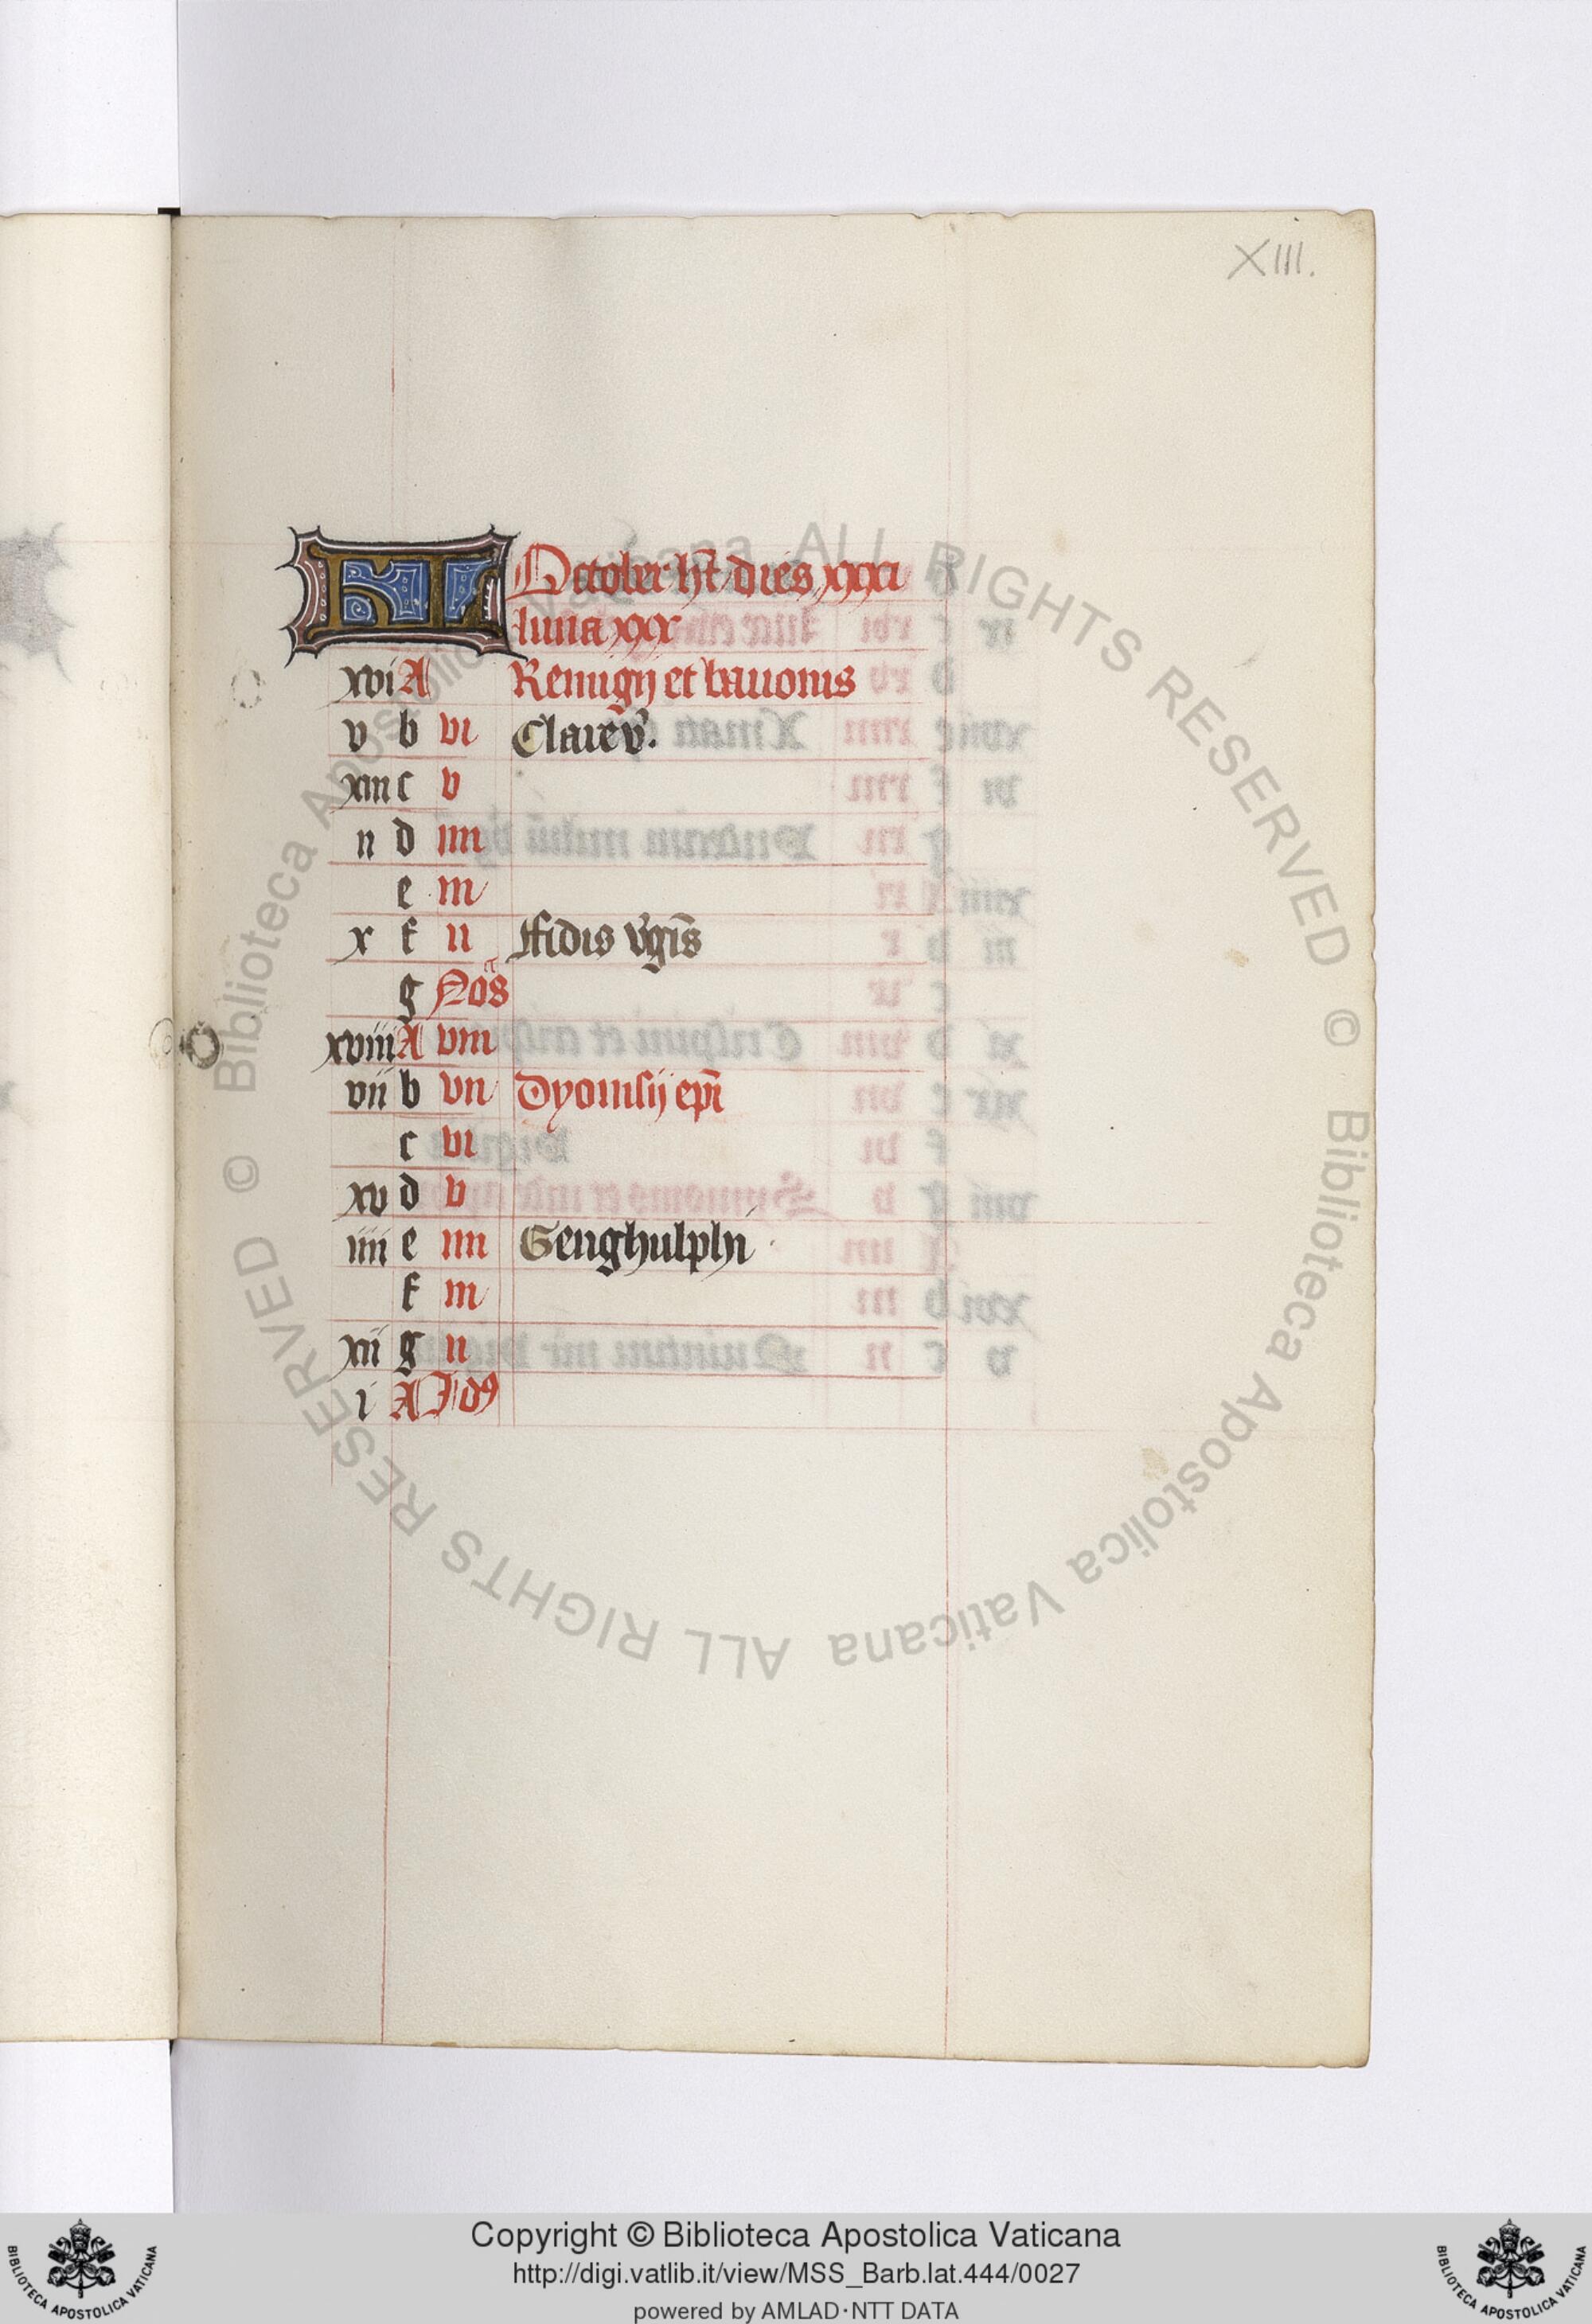 XIII.
KL October ht dies xxxi
luna xxx
xvi A Remigij et bauonis
v b vi Clare v.
xiii c v
ii d iiii
e iii
x f ii ffidis vgis
g Nos
xviii A viii
vii b vii dyonisij epi
c vi
xv d v
iiii e iiii Genghulphi
f iii
xii g ii
i A Idꝰ
© Biblioteca Apostolica Vaticana ALL RIGHTS RESERVED © Biblioteca Apostolica Vaticana ALL RIGHTS RESERVED
Copyright © Biblioteca Apostolica Vaticana
http://digi.vatlib.it/view/MSS_Barb.lat.444/0027
powered by AMLAD·NTT DATA
BIBLIOTECA APOSTOLICA VATICANA
BIBLIOTECA APOSTOLICA VATICANA